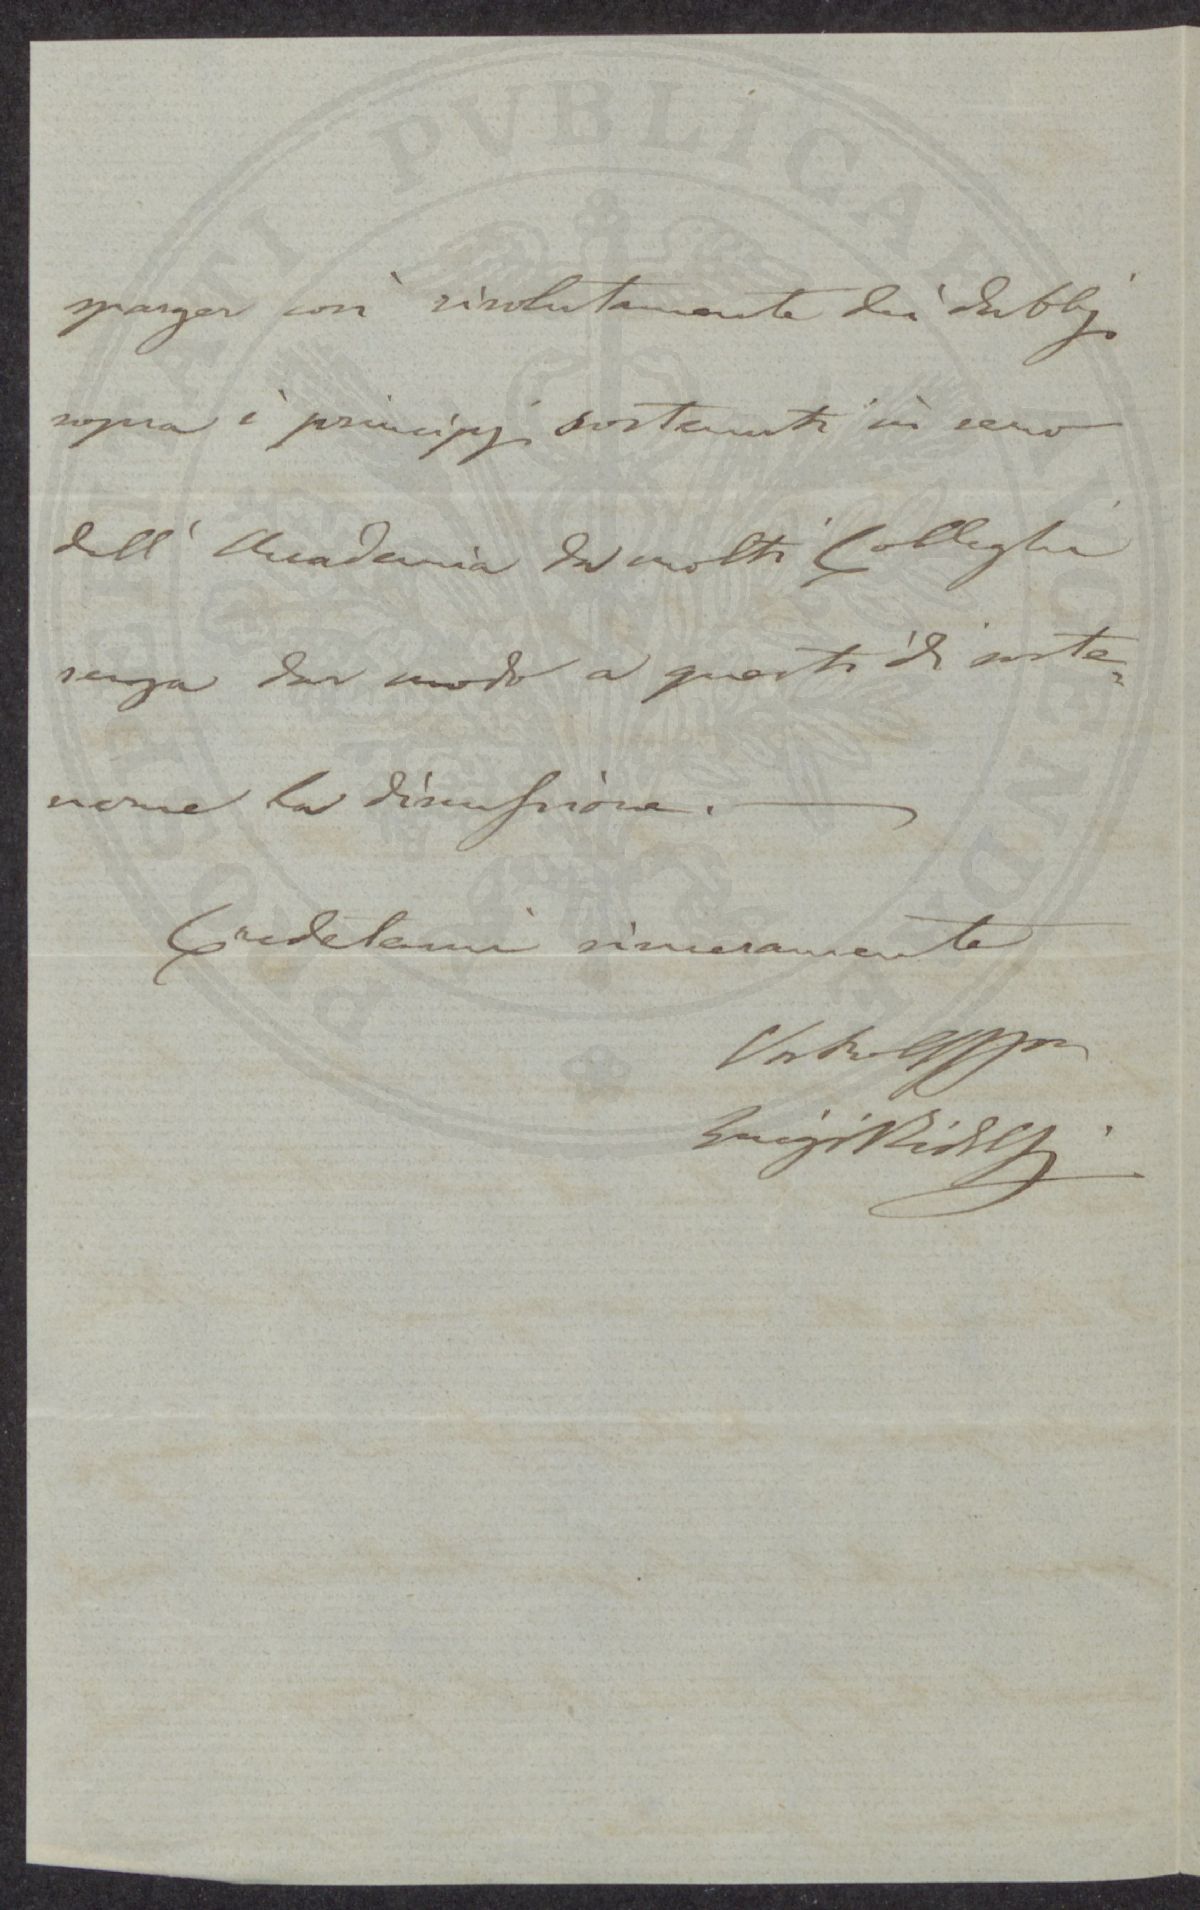 sparger così risolutamente dei dubbj
sopra i principj sostenuti in seno
dell' Accademia da molti Colleghi
senza dar modo a questi di soste=
nerne la discussione.
Credetemi sinceramente
Luigi Ridolfi
PROSPERITATI PUBLICAE AUGENDAE